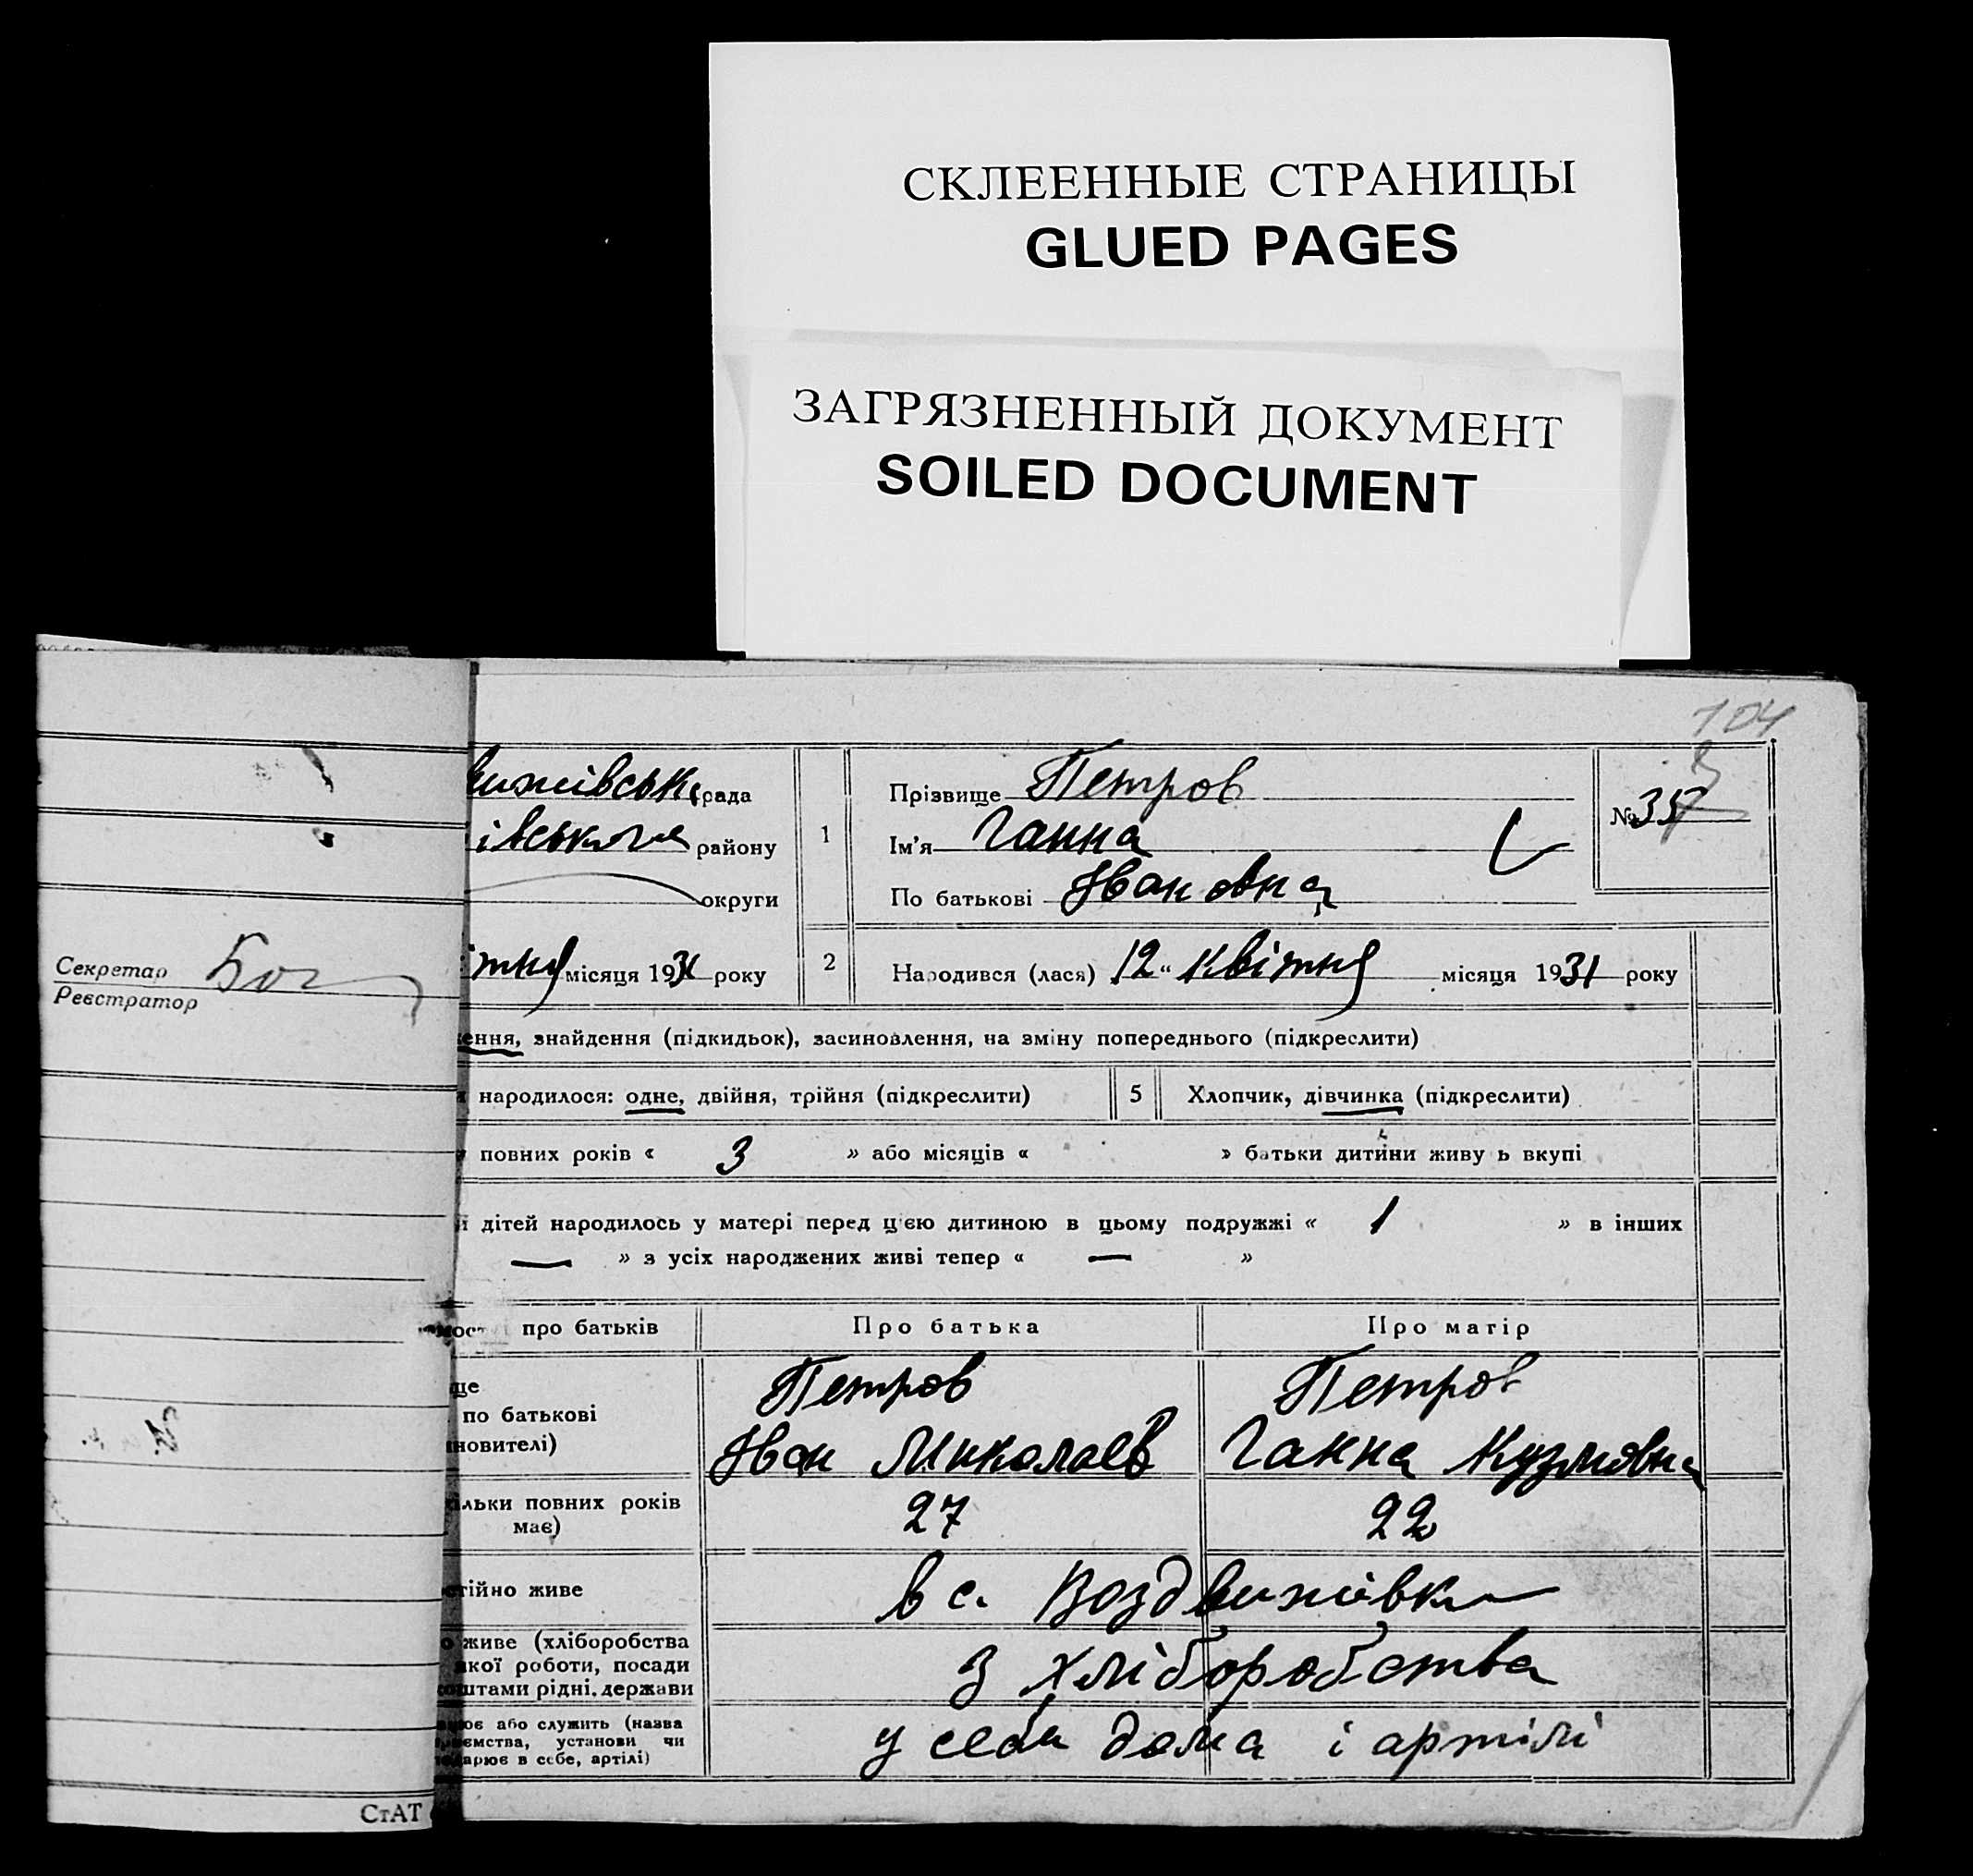 СКЛЕЕННЫЕ СТРАНИЦЫ
GLUED PAGES
ЗАГРЯЗНЕННЫЙ ДОКУМЕНТ
SOILED DOCUMENT
104
вижівськ рада
івського району
округи
1
Прізвище Петров
Ім'я Ганна
По батькові Івановна
№ 35
ітня місяця 1931 року
2
Народився (лася) 12 " квітня місяця 1931 року
Секретар
Реєстратор
ення, знайдення (підкидьок), засиновлення, на зміну попереднього (підкреслити)
народилося: одне, двійня, трійня (підкреслити)
5
Хлопчик, дівчинка (підкреслити)
повних років « 3 » або місяців « » батьки дитини живу ь вкупі
дітей народилось у матері перед цією дитиною в цьому подружжі « 1 » в інших
— » з усіх народжених живі тепер « — »
про батьків
Про батька
Про матір
ще
по батькові
новителі)
Петров
Іван Миколаєв
Петров
Ганна Кузмовна
ільки повних років
має)
27
22
тійно живе
в с. Воздвижівка
живе (хліборобства
якої роботи, посади
коштами рідні, держави
з хліборобства
ює або служить (назва
ємства, установи чи
дарює в себе, артілі)
у себя дома і артілі
СтАТ